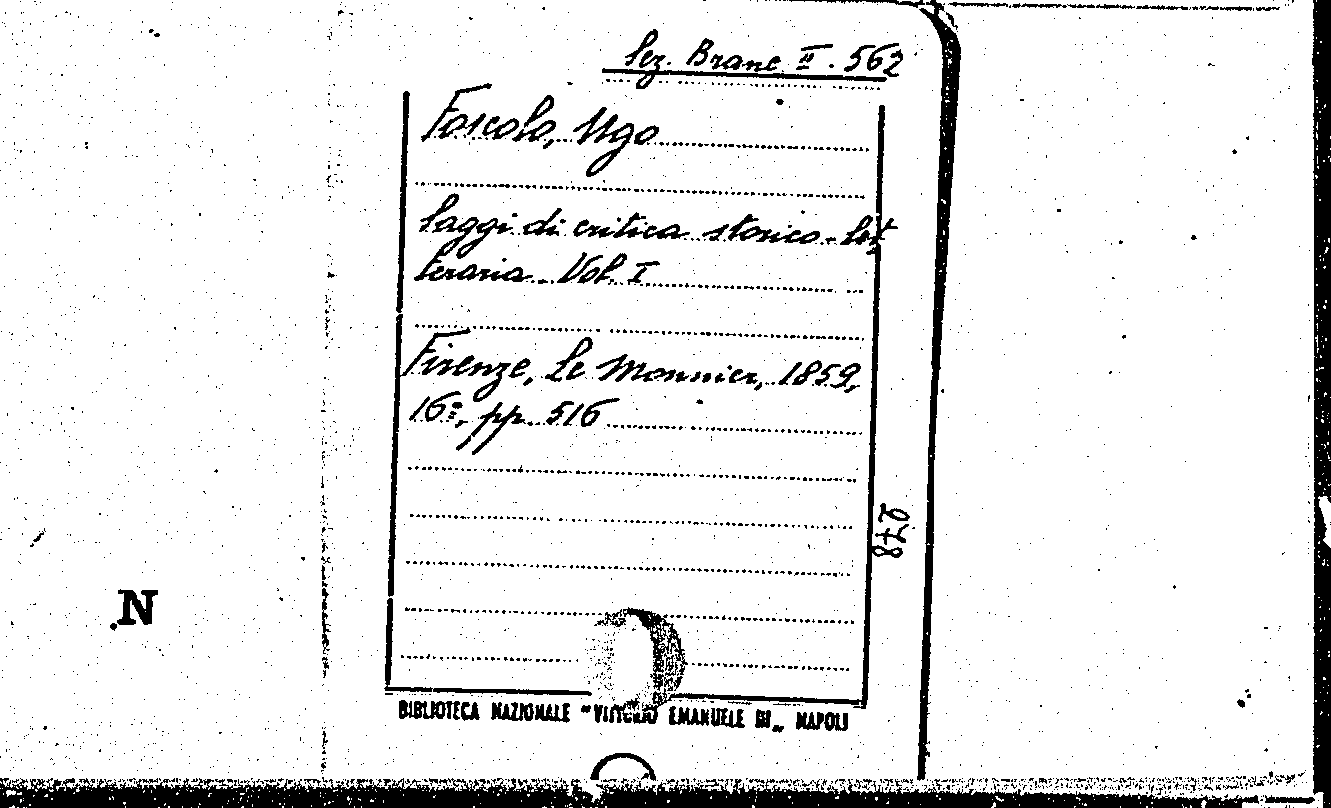 Sez. Branc. II. 562
Foscolo, Ugo
Saggi di critica storico-let-
teraria. Vol. I
Firenze, Le Monnier, 1859,
16º, pp. 516
278
N
BIBLIOTECA NAZIONALE "VITTORIO EMANUELE III„ NAPOLI